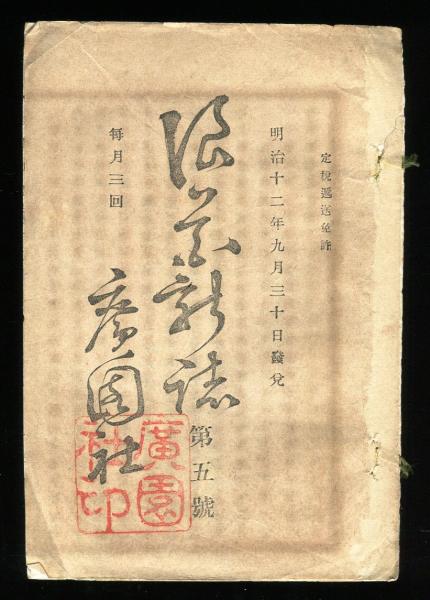 定税逓送免許
明治十二年九月三十日發兌
浪華新誌
第五號
每月三回
廣園社
廣園社印